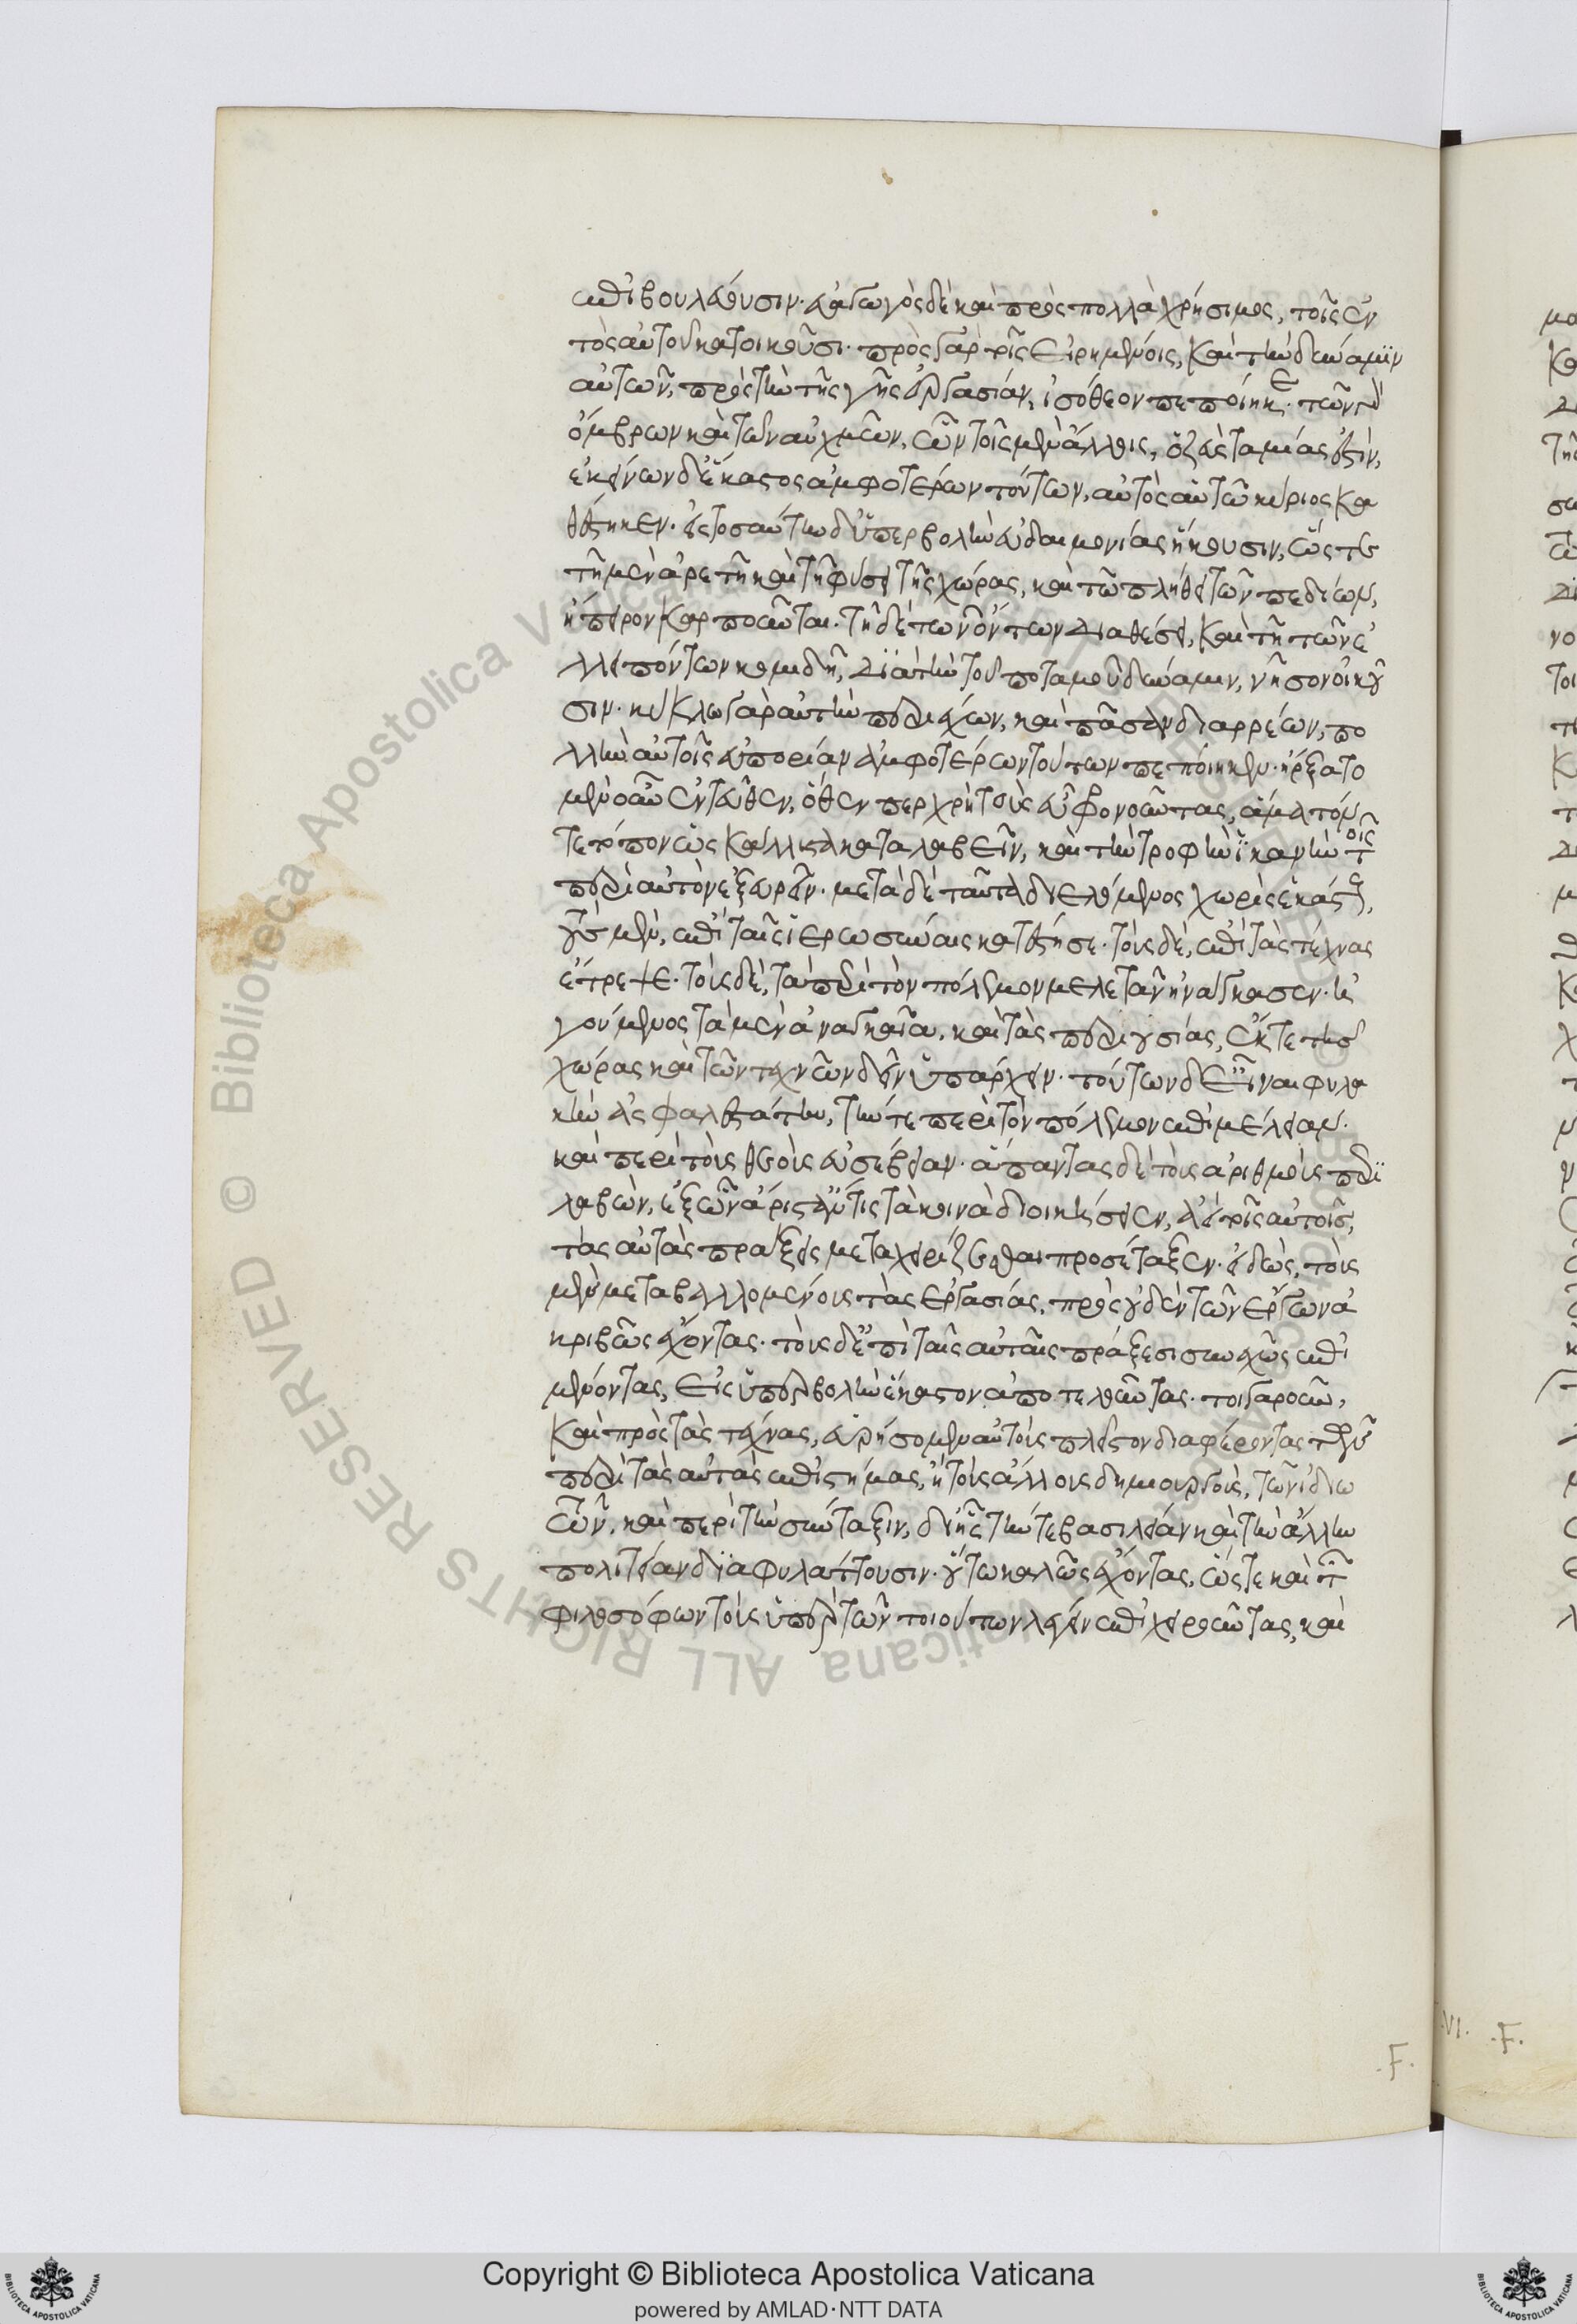 ἐπιβουλεύουσιν· εὐάγωγος δὲ καὶ πρὸς πολλὰ χρήσιμος, τοῖς ἐν
τὸς αὐτοῦ κατοικοῦσι· πρὸς γὰρ τοῖς εἰρημένοις, καὶ τὴν δύναμιν
αὐτῶν, πρὸς τὴν τῆς γῆς ἐργασίαν, ἰσόθεον πεποίηκε· τῶν γὰρ
ὄμβρων καὶ τῶν αὐχμῶν, τοῖς μὲν ἄλλοις, ὁ ζεὺς ταμίας ἐστίν,
ἐκείνων δ' ἕκαστος ἀμφοτέρων τούτων, αὐτὸς αὑτῷ κύριος κα
θέστηκεν· εἰς τοσαύτην δ' ὑπερβολὴν εὐδαιμονίας ἥκουσιν, ὥστε
τῇ μὲν ἀρετῇ καὶ τῇ φύσει τῆς χώρας, καὶ τῷ πλήθει τῶν πεδίων,
ἤπειρον καρποῦνται. τῇ δὲ τῶν ὄντων διαθέσει, καὶ τῇ τῶν ἐ
λλειπόντων κομιδῇ, διὰ τὴν τοῦ ποταμοῦ δύναμιν, νῆσον οἰκοῦ
σιν· κύκλῳ γὰρ αὐτὴν περιέχων, καὶ πᾶσαν διαρρέων, πο
λλὴν αὐτοῖς εὐπορίαν ἀμφοτέρων τούτων πεποίηκεν· ἤρξατο
μὲν οὖν ἐντεῦθεν, ὅθεν περ χρὴ τοὺς εὖ φρονοῦντας, ἅμα τόν
τε τόπον ὡς κάλλιστα καταλαβεῖν, καὶ τὴν τροφὴν ἱκανὴν τοῖς
περὶ αὑτὸν ἐξευρεῖν· μετὰ δὲ ταῦτα διελόμενος χωρὶς ἑκάστους,
τοὺς μὲν, ἐπὶ ταῖς ἱερωσύναις κατέστησε· τοὺς δὲ, ἐπὶ τὰς τέχνας
ἔτρεψε· τοὺς δὲ, τὰ περὶ τὸν πόλεμον μελετᾶν ἠνάγκασεν· ἡ
γούμενος τὰ μὲν ἀναγκαῖα, καὶ τὰς περιουσίας, ἔκ τε τῆς
χώρας καὶ τῶν τεχνῶν δεῖν ὑπάρχειν· τούτων δ' εἶναι φυλα
κὴν ἀσφαλεστάτην, τήν τε περὶ τὸν πόλεμον ἐπιμέλειαν·
καὶ περὶ τοὺς θεοὺς εὐσέβειαν· ἅπαντας δὲ τοὺς ἀριθμοὺς περι
λαβὼν, ἐξ ὧν ἄριστ' ἄν τις τὰ κοινὰ διοικήσειεν, ἀεὶ τοῖς αὐτοῖς,
τὰς αὐτὰς πράξεις μεταχειρίζεσθαι προσέταξεν· εἰδὼς, τοὺς
μὲν μεταβαλλομένους τὰς ἐργασίας, πρὸς οὐδὲν τῶν ἔργων ἀ
κριβῶς ἔχοντας· τοὺς δ' ἐπὶ ταῖς αὐταῖς πράξεσι συνεχῶς ἐπι
μένοντας, εἰς ὑπερβολὴν ἕκαστον ἀποτελοῦντας· τοιγαροῦν,
καὶ πρὸς τὰς τέχνας, εὑρήσομεν αὐτοὺς πλεῖστον διαφέροντας τῶν
περὶ τὰς αὐτὰς ἐπιστήμας, ἢ τοὺς ἄλλους δημιουργοὺς, τῶν ἰδιω
τῶν, καὶ περὶ τὴν σύνταξιν, δι' ἧς τήν τε βασιλείαν καὶ τὴν ἄλλην
πολιτείαν διαφυλάττουσιν· οὕτω καλῶς ἔχοντας, ὥστε καὶ τῶν
φιλοσόφων τοὺς ὑπὲρ τῶν τοιούτων λέγειν ἐπιχειροῦντας, καὶ
.F.
VI. .F.
Copyright © Biblioteca Apostolica Vaticana
powered by AMLAD·NTT DATA